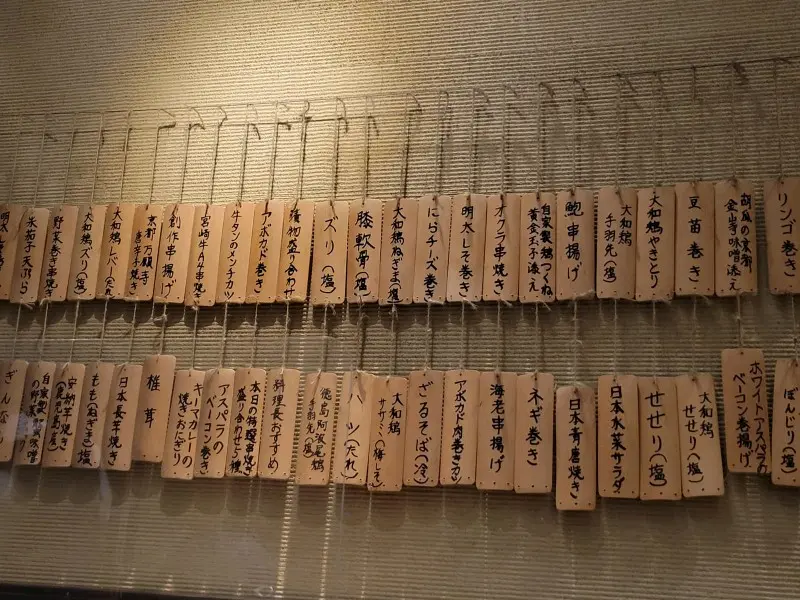 リンゴ巻き
胡瓜の京都
金山寺味噌添え
豆苗巻き
大和鶏やきとり
大和鶏
手羽先(塩)
鮑串揚げ
自家製鶏つくね
黄金玉子添え
オクラ串焼き
明太しそ巻き
にらチーズ巻き
大和鶏ねぎま(塩)
膝軟骨(塩)
ズリ(塩)
漬物盛り合わせ
アボカド巻き
牛タンのメンチカツ
宮崎牛A4串焼き
創作串揚げ
京都万願寺
唐辛子焼き
大和鶏レバー(たれ)
大和鶏ズリ(塩)
野菜巻き串焼き
水茄子天ぷら
ぼんじり(塩)
ホワイトアスパラの
ベーコン巻揚げ
大和鶏
せせり(塩)
せせり(塩)
日本水菜サラダ
日本青唐焼き
ネギ巻き
海老串揚げ
アボカド肉巻きカツ
ざるそば(冷)
大和鶏
ササミ(梅しそ)
ハツ(たれ)
徳島阿波尾鶏
手羽先(塩)
料理長おすすめ
本日の特選串焼き
盛り合わせ5種
アスパラの
ベーコン巻き
キーマカレーの
焼きおにぎり
椎茸
日本長芋焼き
ももねぎま(塩)
安納芋焼き
(鹿児島の産)
自家製
の野菜味噌
ぎんなん